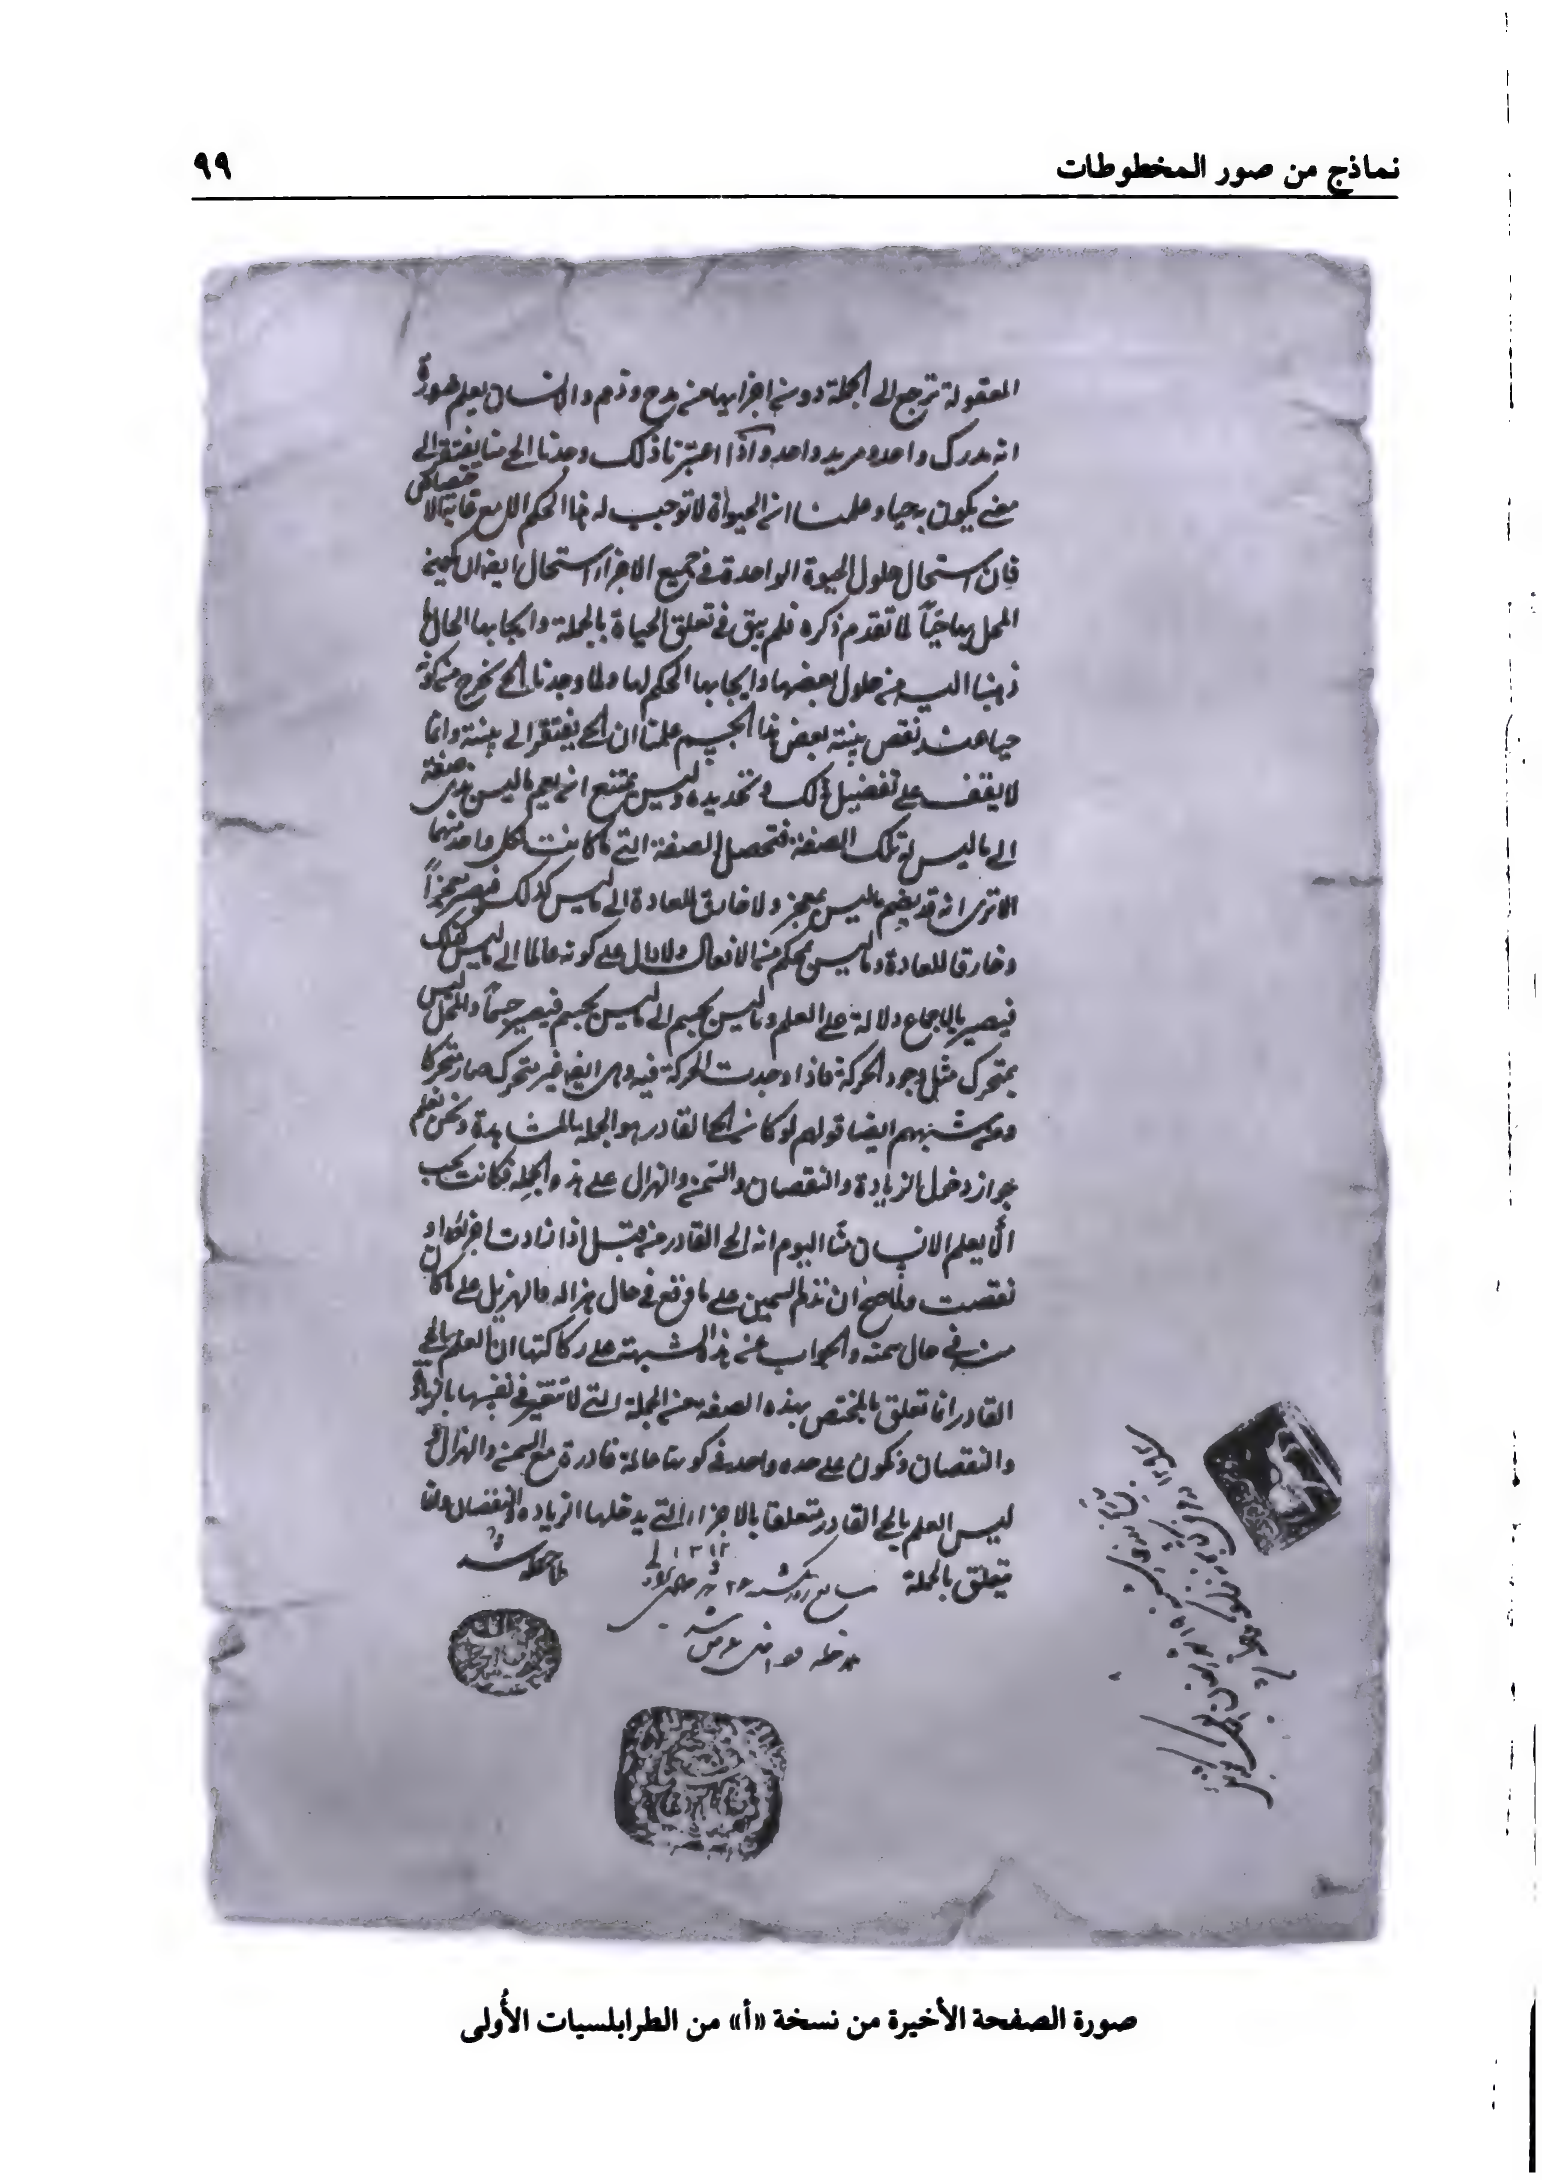 نماذج من صور المخطوطات
٩٩
المعقولة ترجع الى الجملة دون اجزايها من مدح وذم والانسان يعلم ضرورة
انه مدرك واحد ومريد واحد واذا اعتبرنا ذلك وجدنا الحي منا يفتقر الى
معنى يكون به حيا وعلمنا ان الحيوة لا توجب له هذا الحكم الا مع
فان استحال حلول الحيوة الواحدة في جميع الاجزاء استحال ايضا ان
المحل بها حيّاً لما تقدم ذكره فلم يبق في تعلق الحياة بالجملة وايجابها الحال لها
ذهبنا اليه من حلول بعضها وايجابها الحكم لها ولما وجدنا الحي يخرج من كونه
حيا عند نقص بنية بعض هذا الجسم علمنا ان الحي يفتقر الى بنية وانّا
لا يقف على تفضيل ذلك وتحديده وليس يمتنع ان يضم ما ليس صفة
الى ما ليس له تلك الصفة فتحصل الصفة التي ما كانت لكل واحد منهما
الا ترى انه قد يضم ما ليس بمعجز ولا خارق للعادة الى ما ليس كذلك فيصير معجزاً
وخارقا للعادة وما ليس بمحكم من الافعال ولا دال على كونه عالما الى ما ليس كذلك
فيصير بالاجماع دلالة على العلم وما ليس بجسم الى ما ليس بجسم فيصير جسماً والمحل ليس
بمتحرك مثل وجود الحركة فاذا وجدت الحركة فيه وهي ايضا غير متحرك صار متحركا
ومن شبههم ايضا قولهم لو كان الحي القادر هو الجملة المشاهدة ونحن نعلم
جواز دخول الزيادة والنقصان والسّمن والهزال على هذه الجملة فكانت يجب
الّا يعلم الانسان منّا اليوم انه الحي القادر من قبل اذا زادت اجزاؤه او
نقصت ولما صح ان نذم السمين على ما وقع في حال هزاله والهزيل على ما كان
منه في حال سمنه والجواب عن هذه الشبهة على ركاكتها ان العلم بالحي
القادر انما تعلق بالمختص بهذه الصفة من الجملة التي لا تتغير في نفسها بالزيادة
والنقصان وتكون على حده واحد في كونها عالمة قادرة مع السمن والهزال و
ليس العلم بالحي القادر متعلقا بالاجزاء التي يدخلها الزيادة والنقصان وانما
يتعلق بالجملة
ملاحظه شد
صورة الصفحة الأخيرة من نسخة «أ» من الطرابلسيات الأُولى